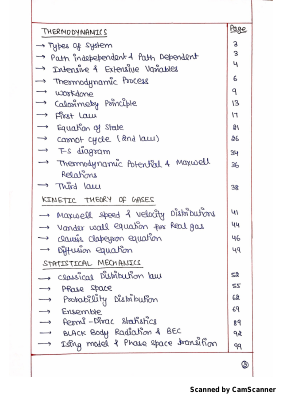 THERMODYNAMICS Page
→ Types of System 3
→ Path independent & Path Dependent 3
→ Intensive & Extensive Variables 4
→ Thermodynamic Process 6
→ Workdone 9
→ Calorimetry Principle 13
→ First Law 17
→ Equation of State 21
→ Carnot cycle (2nd law) 26
→ T-S diagram 34
→ Thermodynamic Potential & Maxwell
Relations 36
→ Third law 38
KINETIC THEORY OF GASES
→ Maxwell speed & velocity Distributions 41
→ Vander wall equation for Real gas 44
→ Clausis Clapeyron equation 46
→ Diffusion equation 49
STATISTICAL MECHANICS
→ Classical Distribution law 52
→ Phase space 55
→ Probability Distribution 62
→ Ensemble 69
→ Fermi-Dirac Statistics 89
→ BLACK Body Radiation & BEC 92
→ Ising model & Phase Space transition 99
Scanned by CamScanner